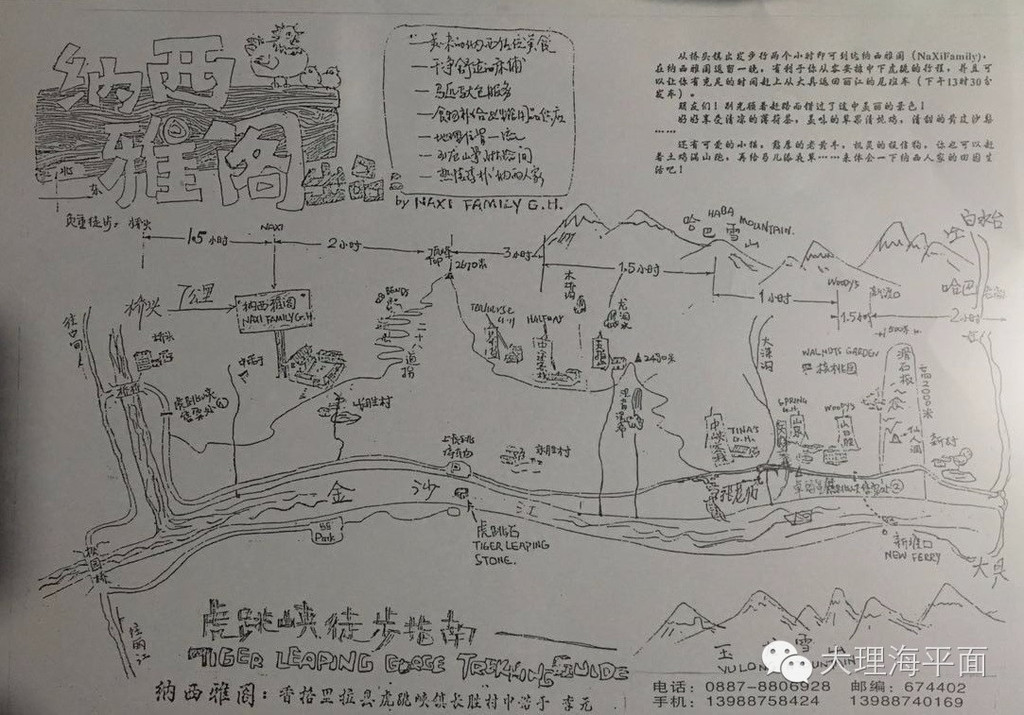 纳西
雅阁
干净舒适的床铺
地理位置一流
热情淳朴的纳西人家
by NAXI FAMILY G.H.
从桥头镇出发步行两个小时即可到达纳西雅阁（NaXiFamily），
在纳西雅阁逗留一晚，有利于你从容安排中下虎跳的行程，并且可
以让你有充足的时间赶上从大具返回丽江的尾班车（下午13时30分
发车）。
朋友们！别光顾着赶路而错过了途中美丽的景色！
好好享受清凉的薄荷茶，美味的草果清炖鸡，清甜的黄皮沙梨
……
还有可爱的小猫，憨厚的老黄牛，机灵的报信狗，你也可以赶
着土鸡满山跑，再给马儿添夜草……来体会一下纳西人家的田园生
活吧！
北
东
桥头
1.5小时
NAXI
2小时
顶峰
TOP
2670米
3小时
1.5小时
哈巴雪山
HABA MOUNTAIN.
白水台
哈巴
1小时
WOODY'S
新渡口
1.5小时
2小时
桥头
7公里
纳西雅阁
NAXI FAMILY G.H.
28 BENDS
二十八道拐
HALFWAY
龙洞水
2450米
观音瀑布
WALNUTS GARDEN
核桃园
滑石板
高2000米
长胜村
永胜村
中峡客栈
TINA'S
G.H.
SPRING
G.H.
WOODY'S
山白脸
新村
张老师
金
沙
江
Park
虎跳石
TIGER LEAPING
STONE.
新渡口
NEW FERRY
大具
往丽江
虎跳峡徒步指南
TIGER LEAPING GORGE TREKKING GUIDE
玉龙雪山
YULONG MOUNTAIN
大理海平面
纳西雅阁：香格里拉县虎跳峡镇长胜村中诺于 李元
电话：0887-8806928 邮编：674402
手机：13988758424 13988740169